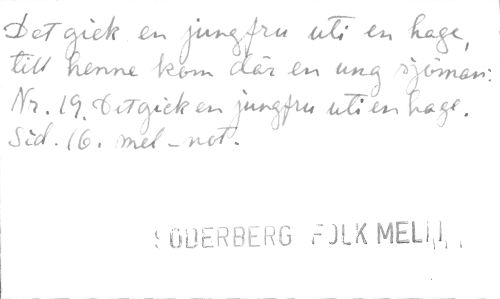 Det gick en jungfru uti en hage,
till henne kom där en ung sjöman:
Nr. 19. Det gick en jungfru uti en hage.
Sid. 16. mel-not.
SÖDERBERG FOLK MEL